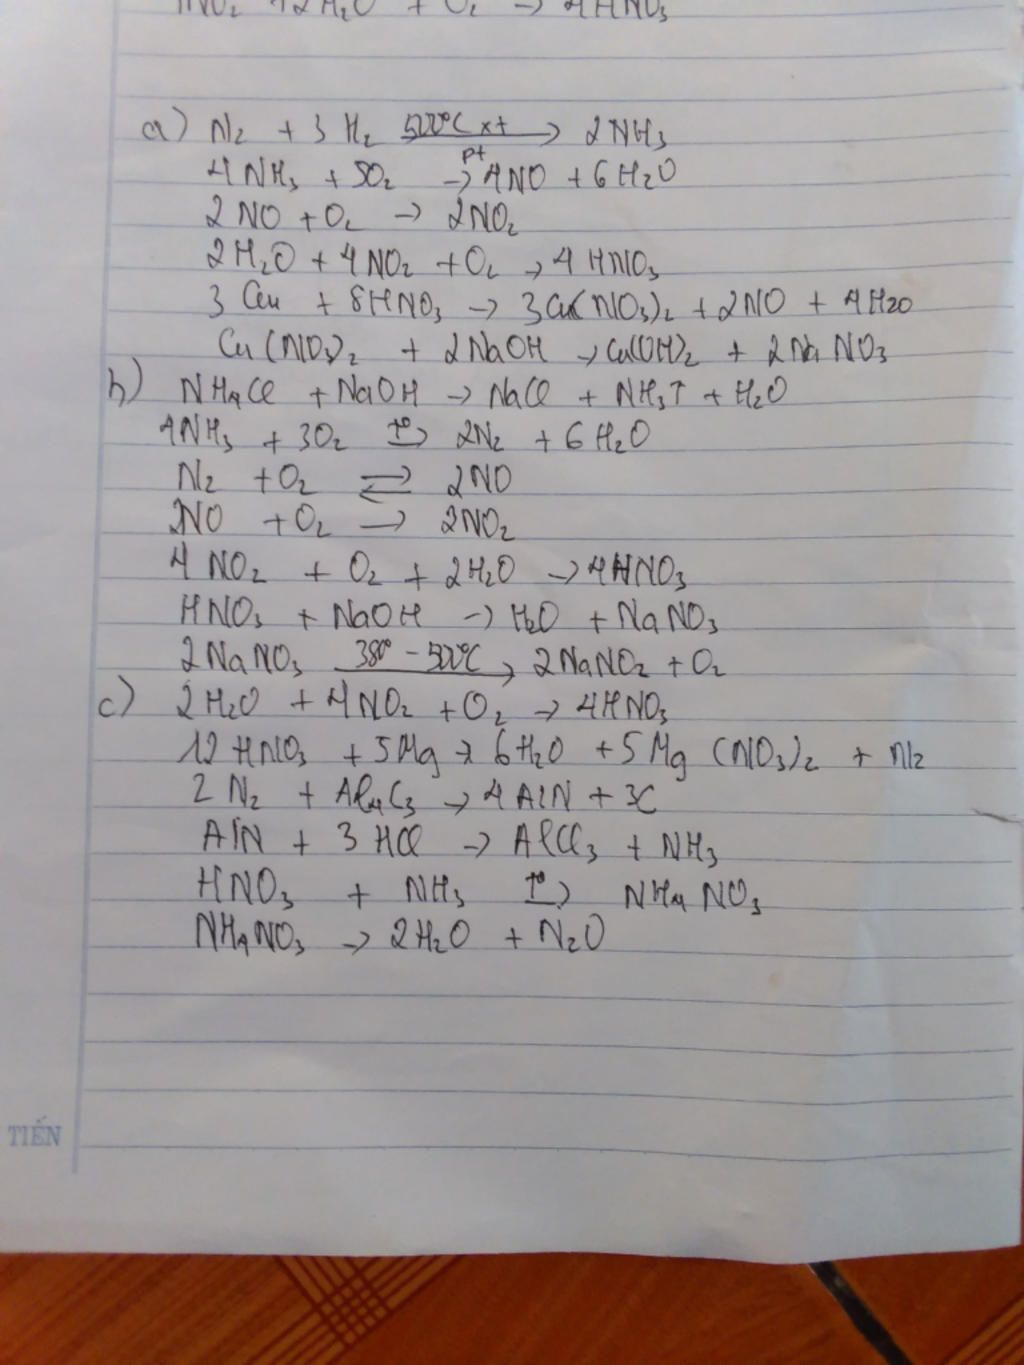 4NO₂ + 2H₂O + O₂ → 4HNO₃
a) N₂ + 3H₂ 500°C xt → 2NH₃
4NH₃ + 5O₂ pt → 4NO + 6H₂O
2NO + O₂ → 2NO₂
2H₂O + 4NO₂ + O₂ → 4HNO₃
3Cu + 8HNO₃ → 3Cu(NO₃)₂ + 2NO + 4H₂O
Cu(NO₃)₂ + 2NaOH → Cu(OH)₂ + 2NaNO₃
b) NH₄Cl + NaOH → NaCl + NH₃↑ + H₂O
4NH₃ + 3O₂ t° → 2N₂ + 6H₂O
N₂ + O₂ ⇌ 2NO
2NO + O₂ → 2NO₂
4NO₂ + O₂ + 2H₂O → 4HNO₃
HNO₃ + NaOH → H₂O + NaNO₃
2NaNO₃ 380° - 500°C → 2NaNO₂ + O₂
c) 2H₂O + 4NO₂ + O₂ → 4HNO₃
12HNO₃ + 5Mg → 6H₂O + 5Mg(NO₃)₂ + N₂
2N₂ + Al₄C₃ → 4AlN + 3C
AlN + 3HCl → AlCl₃ + NH₃
HNO₃ + NH₃ t° → NH₄NO₃
NH₄NO₃ → 2H₂O + N₂O
TIẾN